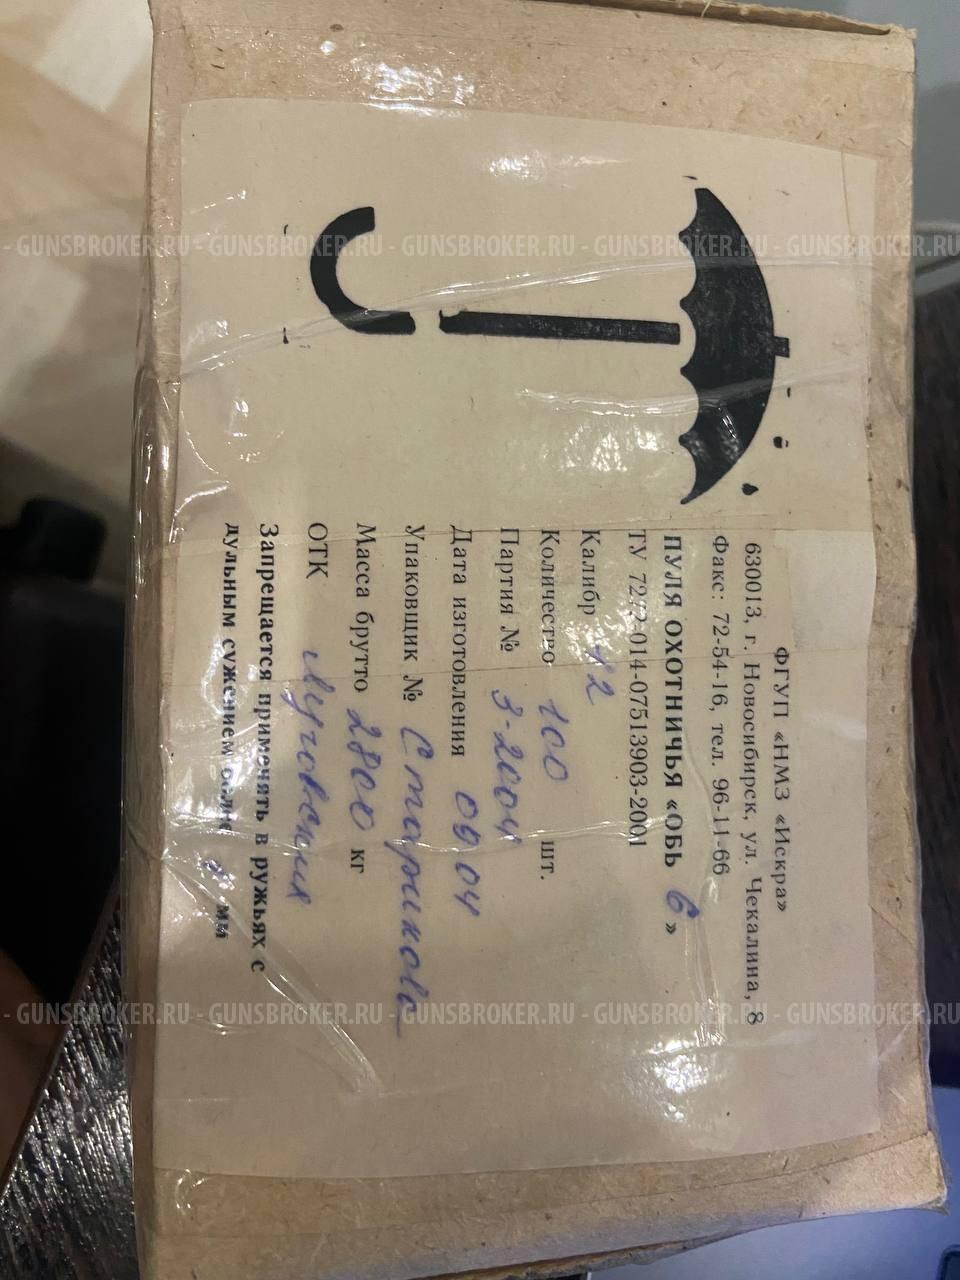 ФГУП «НМЗ «Искра»
630013, г. Новосибирск, ул. Чекалина, 8
Факс: 72-54-16, тел. 96-11-66
ПУЛЯ ОХОТНИЧЬЯ «ОБЬ 6»
ТУ 7272-014-07513903-2001
Калибр 12
Количество 100 шт.
Партия № 3-2004
Дата изготовления 09 04
Упаковщик № Старикова
Масса брутто 2800 кг
ОТК
Запрещается применять в ружьях с
дульным сужением более мм
- GUNSBROKER.RU - GUNSBROKER.RU - GUNSBROKER.RU - GUNSBROKER.RU - GUNSBROKER.RU
- GUNSBROKER.RU - GUNSBROKER.RU - GUNSBROKER.RU - GUNSBROKER.RU - GUNSBROKER.RU